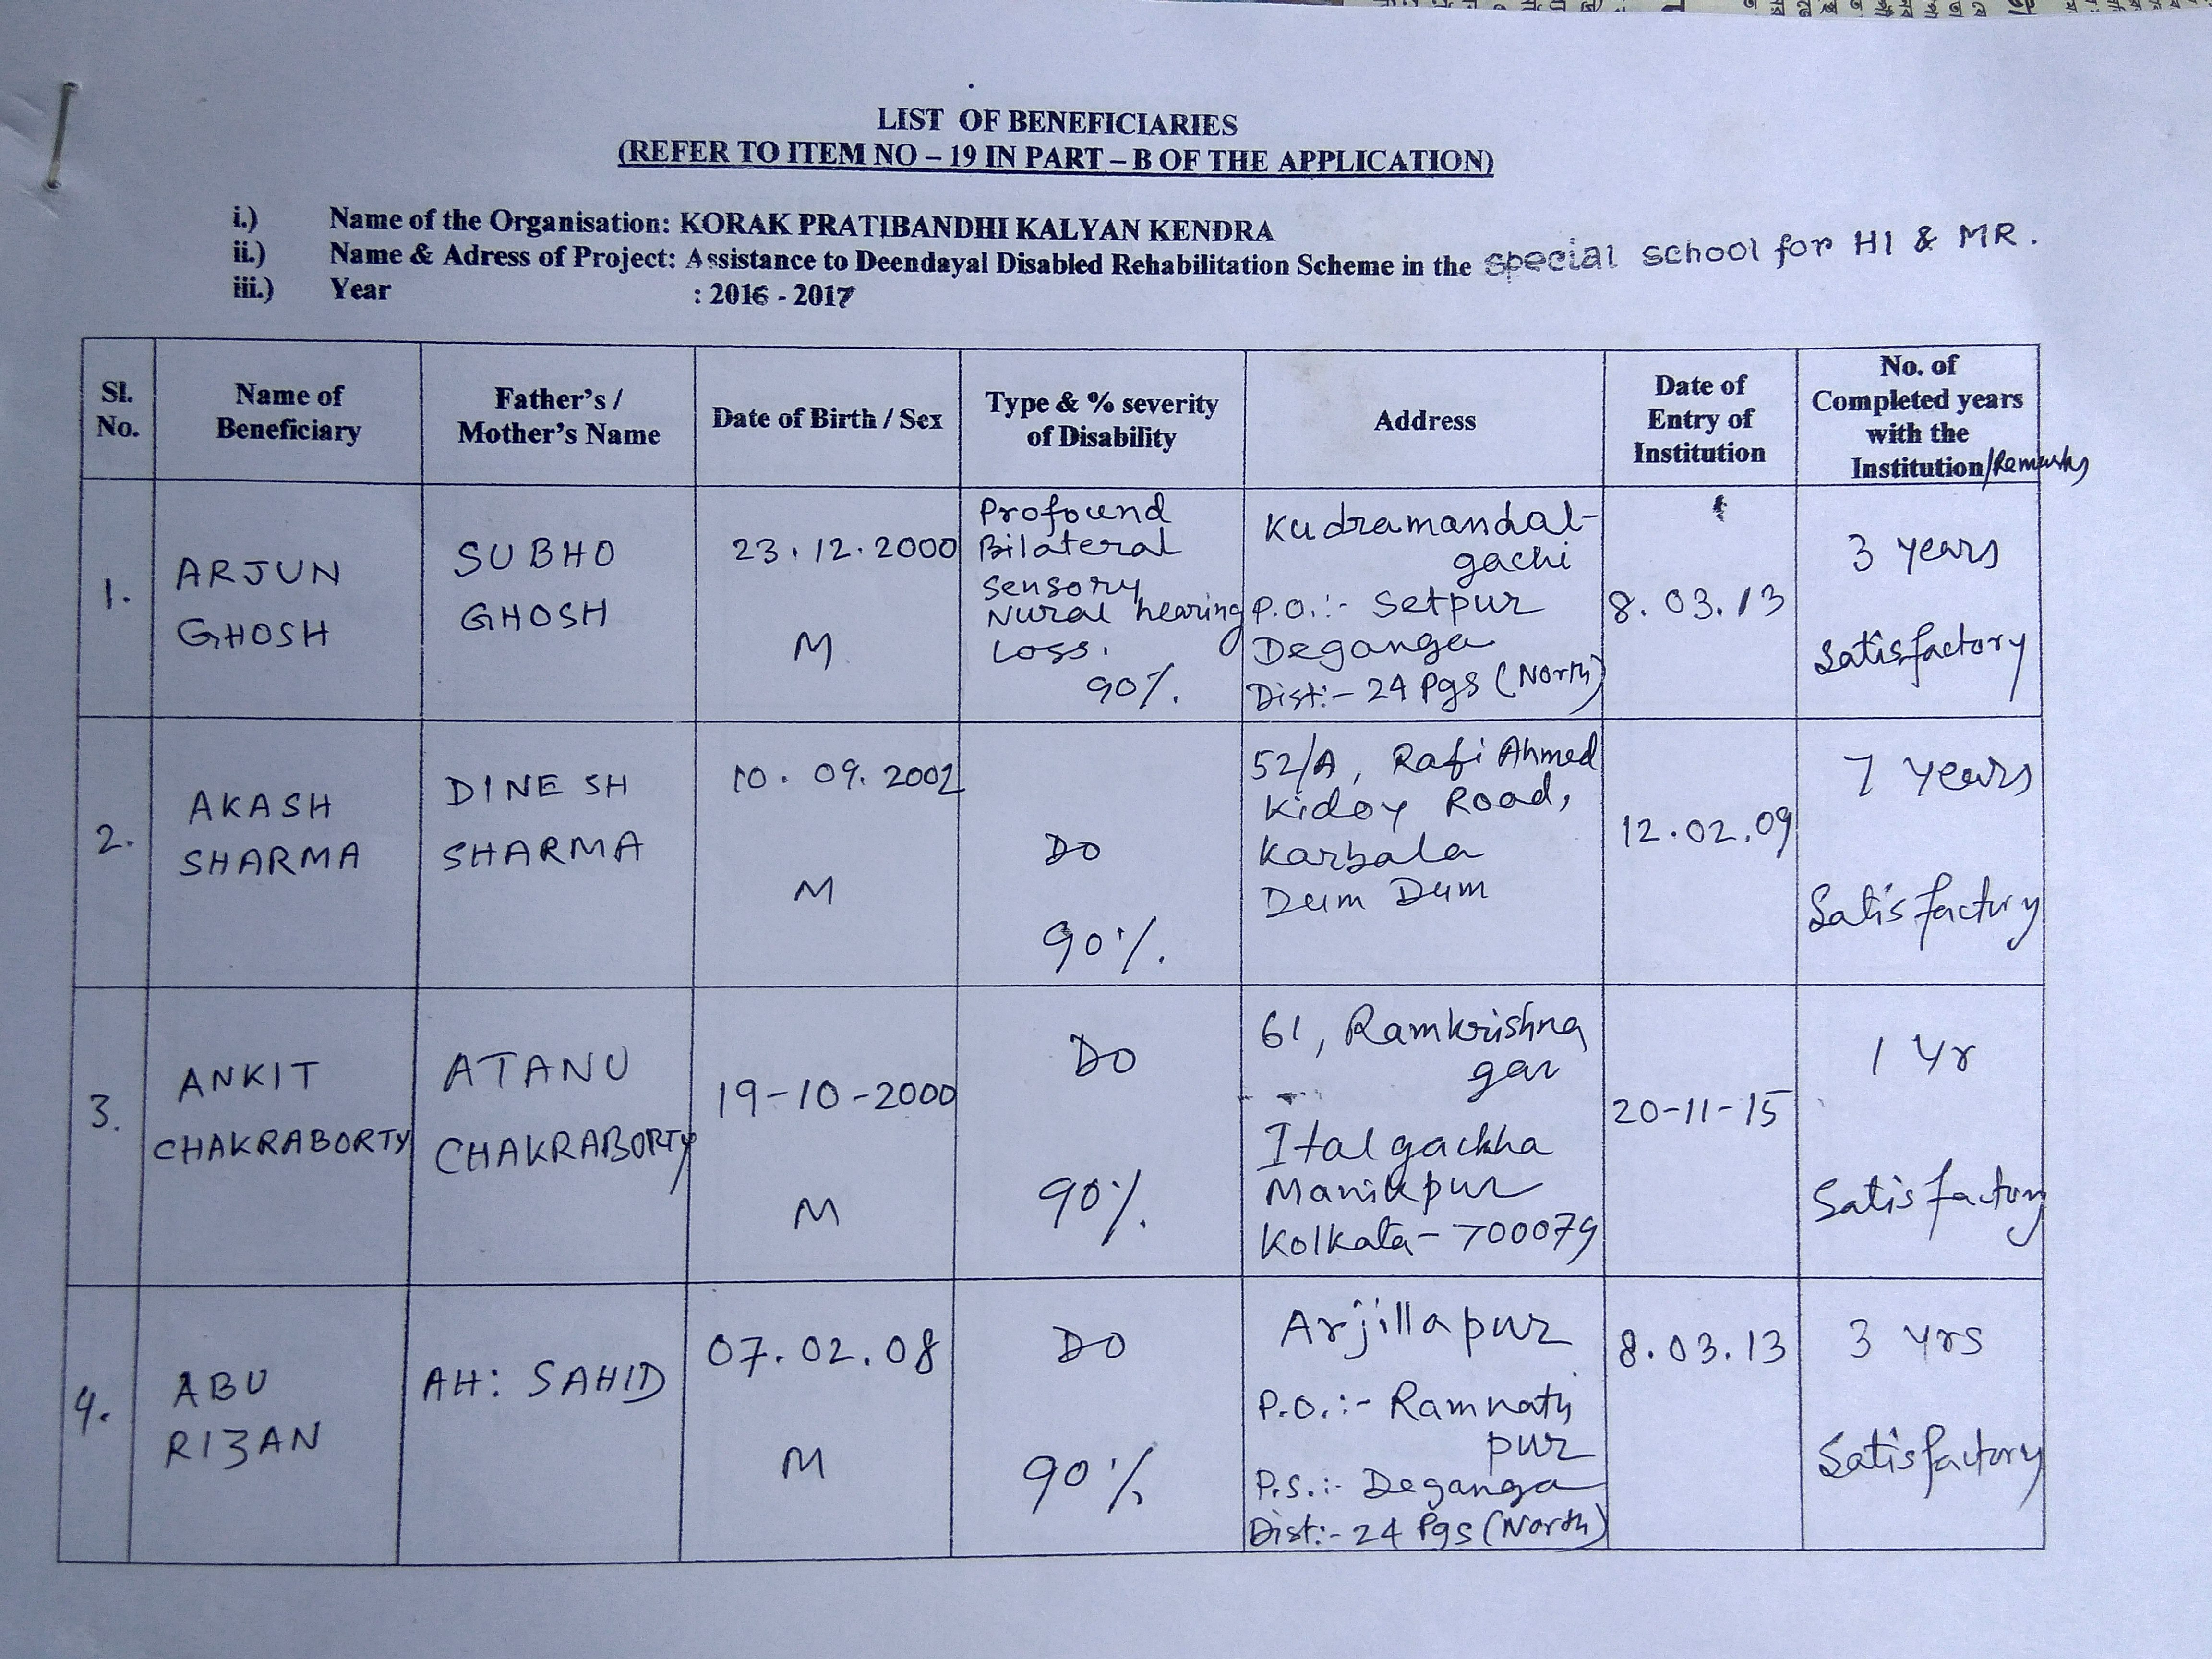 LIST OF BENEFICIARIES
(REFER TO ITEM NO – 19 IN PART – B OF THE APPLICATION)
i.) Name of the Organisation: KORAK PRATIBANDHI KALYAN KENDRA
ii.) Name & Adress of Project: Assistance to Deendayal Disabled Rehabilitation Scheme in the special school for HI & MR.
iii.) Year : 2016 - 2017
Sl. No.
Name of Beneficiary
Father's / Mother's Name
Date of Birth / Sex
Type & % severity of Disability
Address
Date of Entry of Institution
No. of Completed years with the Institution/Remarks
1.
ARJUN
GHOSH
SUBHO
GHOSH
23.12.2000
M
Profound
Bilateral
Sensory
Nural hearing
Loss.
90%.
Kudramandal-
gachi
P.O.:- Setpur
Deganga
Dist:- 24 Pgs (North)
8.03.13
3 years
Satisfactory
2.
AKASH
SHARMA
DINESH
SHARMA
10.09.2002
M
DO
90%.
52/A, Rafi Ahmed
Kidoy Road,
Karbala
Dum Dum
12.02.09
7 years
Satisfactory
3.
ANKIT
CHAKRABORTY
ATANU
CHAKRABORTY
19-10-2000
M
DO
90%.
61, Ramkrishna
gar
Italgachha
Kolkata- 700079
20-11-15
1 Yr
Satisfactory
4.
ABU
RIZAN
AH: SAHID
07.02.08
M
DO
90%
Arjillapur
P.O.:- Ramnath
pur
P.S.:- Deganga
Dist:- 24 Pgs (North)
8.03.13
3 yrs
Satisfactory